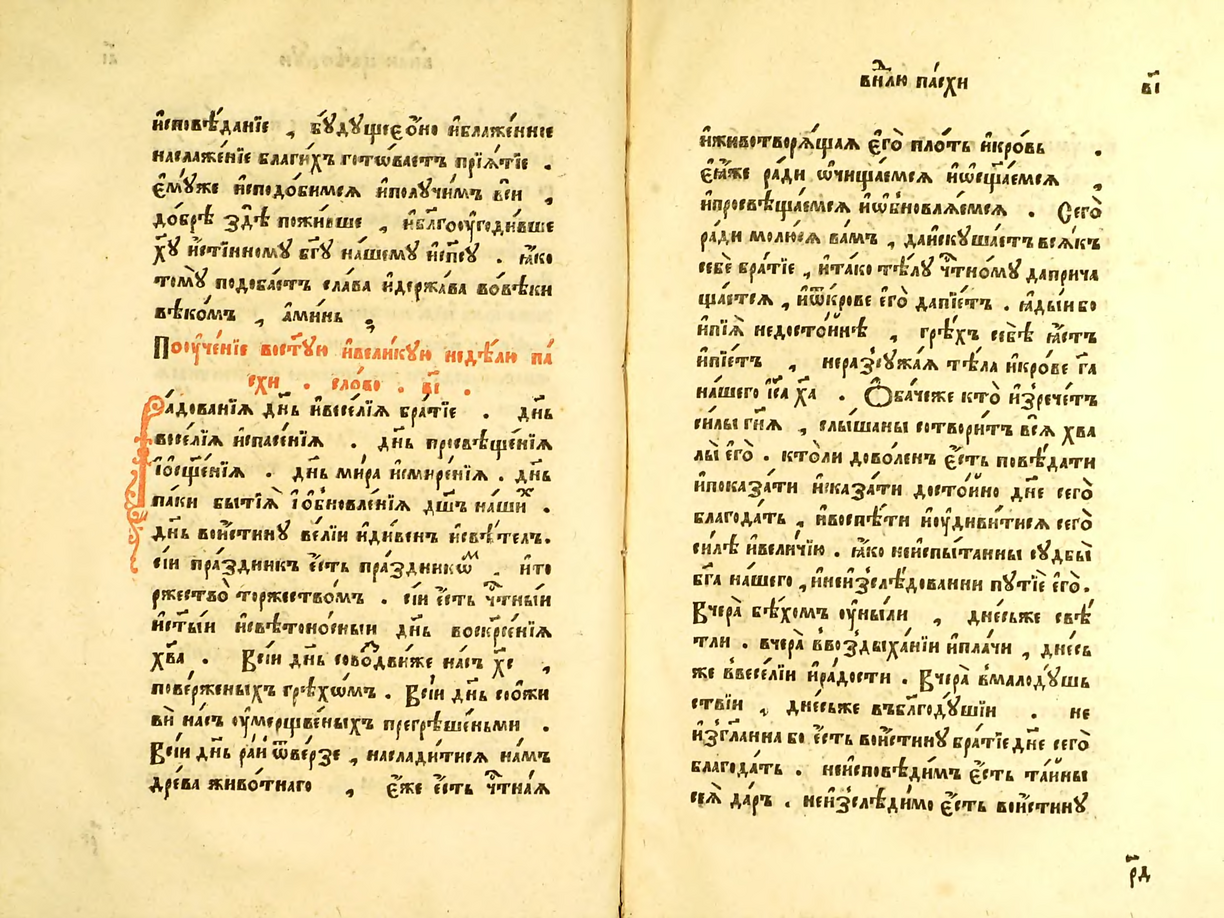 и҆сповѣ́данїе , бꙋ́дꙋщее ѻ҆́но и҆блаже́нное
наслаже́нїе благи́хъ гото́ваетъ прїѧ́тїе .
є҆мꙋ́же и҆сподо́бимсѧ и҆полꙋчи́мъ вси́ ,
до́брѣ здѣ̀ пожи́вше , и҆бл҃гооу҆годи́вше
хꙋ҃ и҆́стинномꙋ бг҃ꙋ на́шемꙋ и҆сп҃сꙋ . ꙗ҆́ко
томꙋ̀ подоба́етъ сла́ва и҆держа́ва во́вѣки
вѣко́мъ , а҆ми́нь ,
Пооу҆че́нїе вост҃ꙋю и҆вели́кꙋю недѣ́лю па́
схи . сло́во . в҃і .
Ра́дованїѧ дн҃ь и҆весе́лїѧ бра́тїе . дн҃ь
весе́лїѧ и҆спасе́нїѧ . дн҃ь просвѣще́нїѧ
і҆ѻ҆сщ҃е́нїѧ . дн҃ь ми́ра и҆смире́нїѧ . дн҃ь
па́ки бытїѧ̀ і҆ѻ҆бновле́нїѧ дш҃ъ на́шиⷯ .
дн҃ь вои́стинꙋ ве́лїи и҆ди́венъ и҆свѣ́телъ.
сі́и пра́здникъ є҆́сть пра́здникѡⷨ . и҆то
ржество̀ торжество́мъ . сі́и є҆́сть чⷭ҇тны́и
и҆ст҃ы́и и҆свѣтоно́сныи дн҃ь воскрⷭ҇е́нїѧ
хв҃а . Всі́и дн҃ь совоⷥдви́же на́съ хс҃ ,
пове́рженыхъ грѣхѡ́мъ . Всі́и дн҃ь соѡжи
вѝ на́съ оу҆ме́рщвеныхъ прегрѣше́ньми .
Всі́и дн҃ь ра́и ѿве́рзе , наслади́тисѧ на́мъ
дре́ва живо́тнаго , є҆́же є҆́сть чⷭ҇тна́ѧ
внⷣлю па́схи
в҃і
и҆животворѧ́щаѧ є҆гѡ̀ пло́ть и҆кро́вь .
є҆ѧ́же ра́ди ѡ҆чища́емсѧ и҆ѡ҆сщ҃а́емсѧ ,
и҆просвѣща́емсѧ и҆ѡ҆бновлѧ́емсѧ . Сего̀
ра́ди молю́сѧ ва́мъ , да́искꙋша́етъ всѧ́къ
себѐ бра́тїе , и҆та́ко тѣ́лꙋ чⷭ҇тно́мꙋ да́прича
ща́етсѧ , и҆ѿкро́ве є҆гѡ̀ да́пїетъ . ꙗ҆ды́и бо
и҆пїѧ̀ недосто́йнѣ , грѣ́хъ себѣ̀ ꙗ҆́стъ
и҆пїе́тъ , неразсꙋжа́ѧ тѣ́ла и҆кро́ве гⷭ҇а
на́шего і҆с҃а х҃а . Ѻ҆ба́чеже кто̀ и҆зрече́тъ
си́лы гн҃ѧ , слы́шаны сотвори́тъ всѧ̀ хва
лы̀ є҆гѡ̀ . кто́ли дово́ленъ є҆́сть повѣ́дати
и҆показа́ти и҆сказа́ти досто́йно днѐ сего̀
благода́ть , и҆воспѣ́ти и҆оу҆диви́тисѧ сего̀
си́лѣ и҆вели́чїю . ꙗ҆́ко неи҆спы́танны сꙋдбы̀
бг҃а на́шего , и҆неи҆зслѣ́дованни пꙋтїѐ є҆гѡ̀.
Вчера̀ бѣ́хомъ оу҆ны́ли , дне́сьже свѣ́
тли . вчера̀ ввоздыха́нїи и҆пла́чи , дне́сь
же ввесе́лїи и҆ра́дости . Вчера̀ вмалодꙋ́шь
ствїи , дне́сьже въбл҃годꙋ́шїи . не
и҆зг҃ла́нна бо є҆́сть вои́стинꙋ бра́тїе днѐ сего̀
благода́ть . неи҆сповѣ́димъ є҆́сть та́йны
сеѧ̀ да́ръ . неи҆зслѣ́димо є҆́сть вои́стинꙋ
р҃д